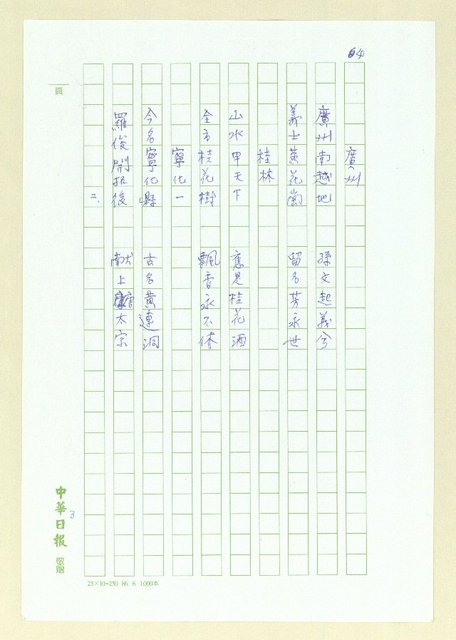 64
廣州
廣州南越地 孫文起義兮
義士黃花崗 留名芳永世
桂林
山水甲天下 應是桂花酒
全市桂花樹 飄香永不休
寧化一
今名寧化縣 古名黃連洞
羅俊開拓後 献上唐太宗
二、
頁
中華日報
敬贈
3
25×10=250 86. 6. 1000本